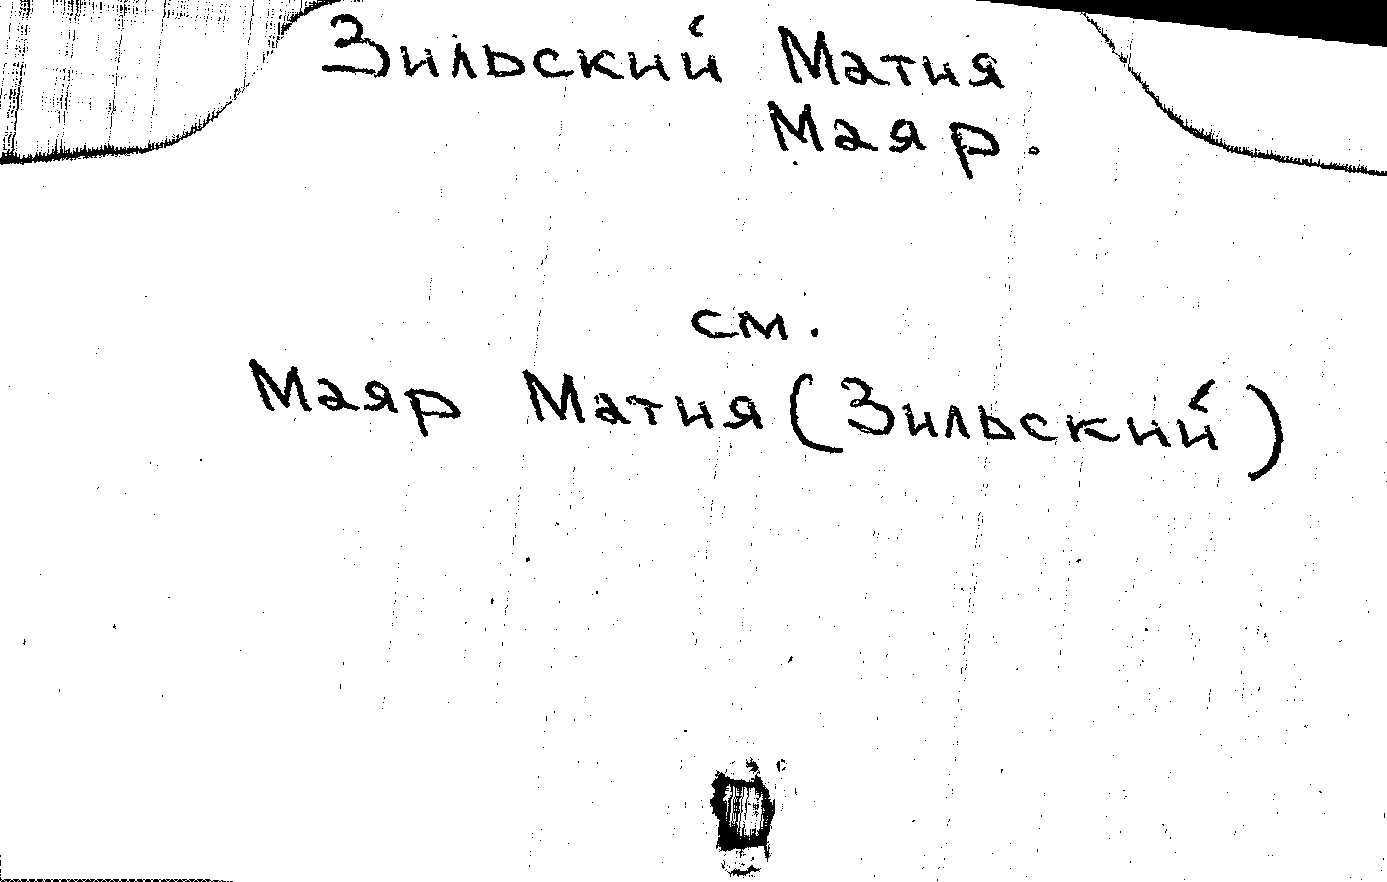 Зильский Матия
Маяр.
см.
Маяр Матия (Зильский)